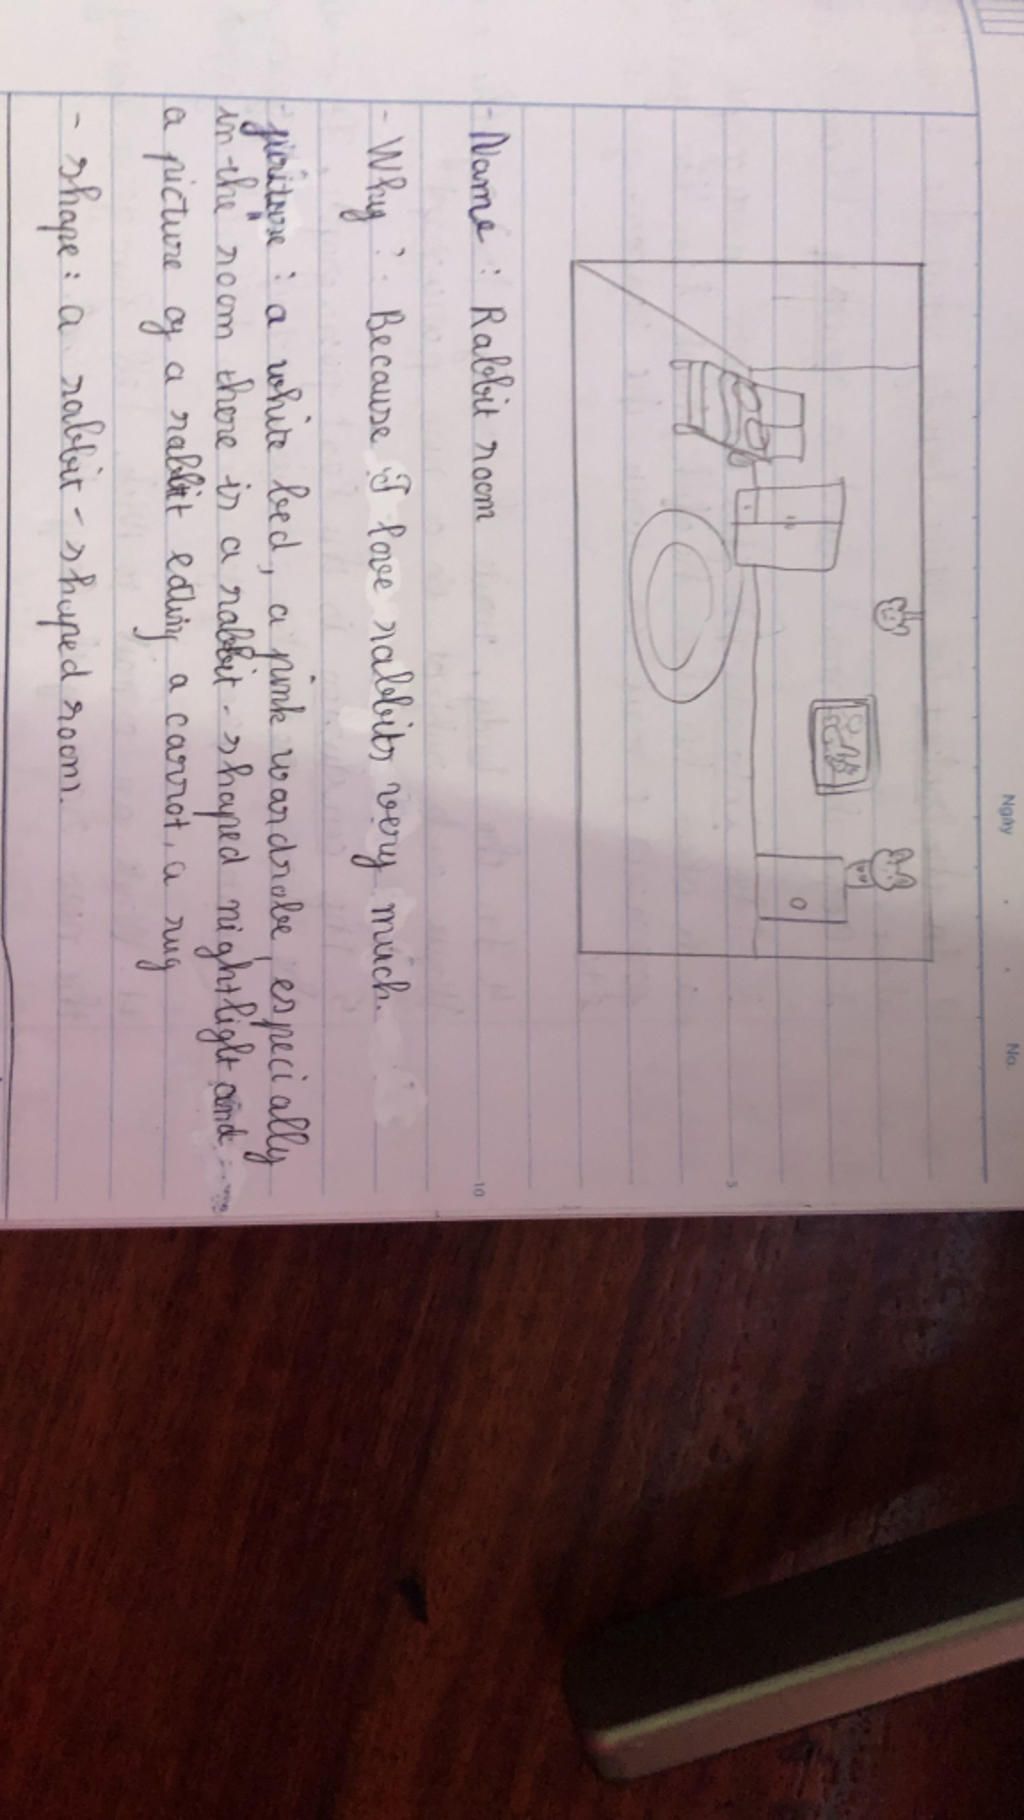 Ngày No.
5
10
- Name : Rabbit room
- Why ? Because I love rabbits very much.
: a white bed, a pink wardrobe, especially
in the room there is a rabbit - shaped night light and
a picture of a rabbit eating a carrot, a rug
- shape : a rabbit - shaped room.